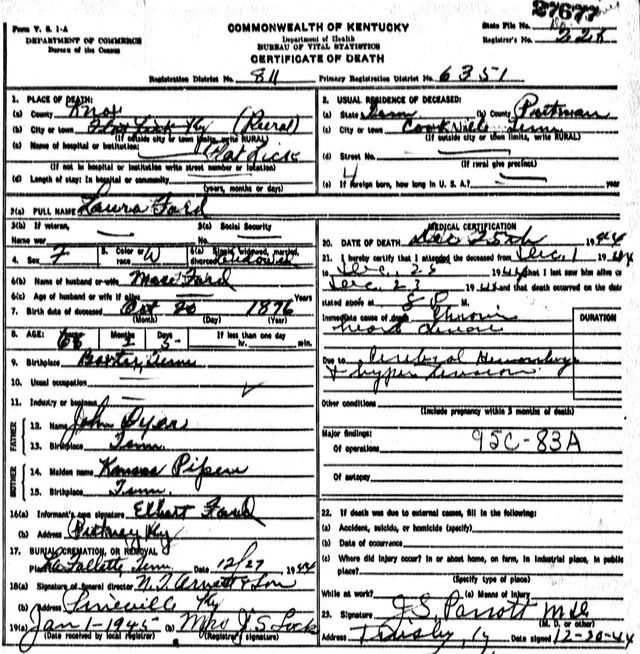 27677
Form V. S. 1-A
DEPARTMENT OF COMMERCE
Bureau of the Census
COMMONWEALTH OF KENTUCKY
Department of Health
BUREAU OF VITAL STATISTICS
CERTIFICATE OF DEATH
State File No.
Registrar's No. 228
Registration District No. 811 Primary Registration District No. 6351
1. PLACE OF DEATH:
(a) County Knox
(b) City or town Flat Lick Ky (Rural)
(If outside city or town limits, write RURAL)
(c) Name of hospital or institution: Flat Lick
(If not in hospital or institution write street number or location)
(d) Length of stay: In hospital or community
(years, months or days)
2. USUAL RESIDENCE OF DECEASED:
(a) State Tenn (b) County Putman
(c) City or town Cookville Tenn
(If outside city or town limits, write RURAL)
(d) Street No.
(If rural give precinct)
(e) If foreign born, how long in U. S. A.? years
3(a) FULL NAME Laura Ford
3(b) If veteran, Name war 3(c) Social Security No.
4. Sex F 5. Color or race W 6(a) Single, widowed, married, divorced widowed
6(b) Name of husband or wife Mace Ford
6(c) Age of husband or wife if alive Years
7. Birth date of deceased Oct 20 1876
(Month) (Day) (Year)
8. AGE: Years 68 Months 2 Days 3 If less than one day hr. min.
9. Birthplace Baxter, Tenn
10. Usual occupation
11. Industry or business
FATHER
12. Name John Dyer
13. Birthplace Tenn.
MOTHER
14. Maiden name Kansas Pipen
15. Birthplace Tenn.
16(a) Informant's own signature Elbert Ford
(b) Address Ky
17. BURIAL, CREMATION, OR REMOVAL
Place La Follette, Tenn. Date 12/27 1944
18(a) Signature of funeral director & Son
(b) Address Pineville Ky
19(a) Jan 1-1945 (b) Mrs J S Lock
(Date received by local registrar) (Registrar's signature)
MEDICAL CERTIFICATION
20. DATE OF DEATH Dec 25th 1944
21. I hereby certify that I attended the deceased from Dec. 1 1944
to Dec. 23 1944 that I last saw him alive on
Dec. 23 1944 and that death occurred on the date
stated above at 8 P. M.
Immediate cause of death Chronic
heart disease
DURATION
Due to Cerebral Hemorrhage
& hyper tension
Other conditions
(Include pregnancy within 3 months of death)
Major findings:
Of operations 95C-83A
Of autopsy
22. If death was due to external causes, fill in the following:
(a) Accident, suicide, or homicide (specify)
(b) Date of occurrence
(c) Where did injury occur? In or about home, on farm, in industrial place, in public
place?
(Specify type of place)
While at work? (e) Means of injury
23. Signature J S Parrott M D
(M. D. or other)
Address Ky Date signed 12-30-44